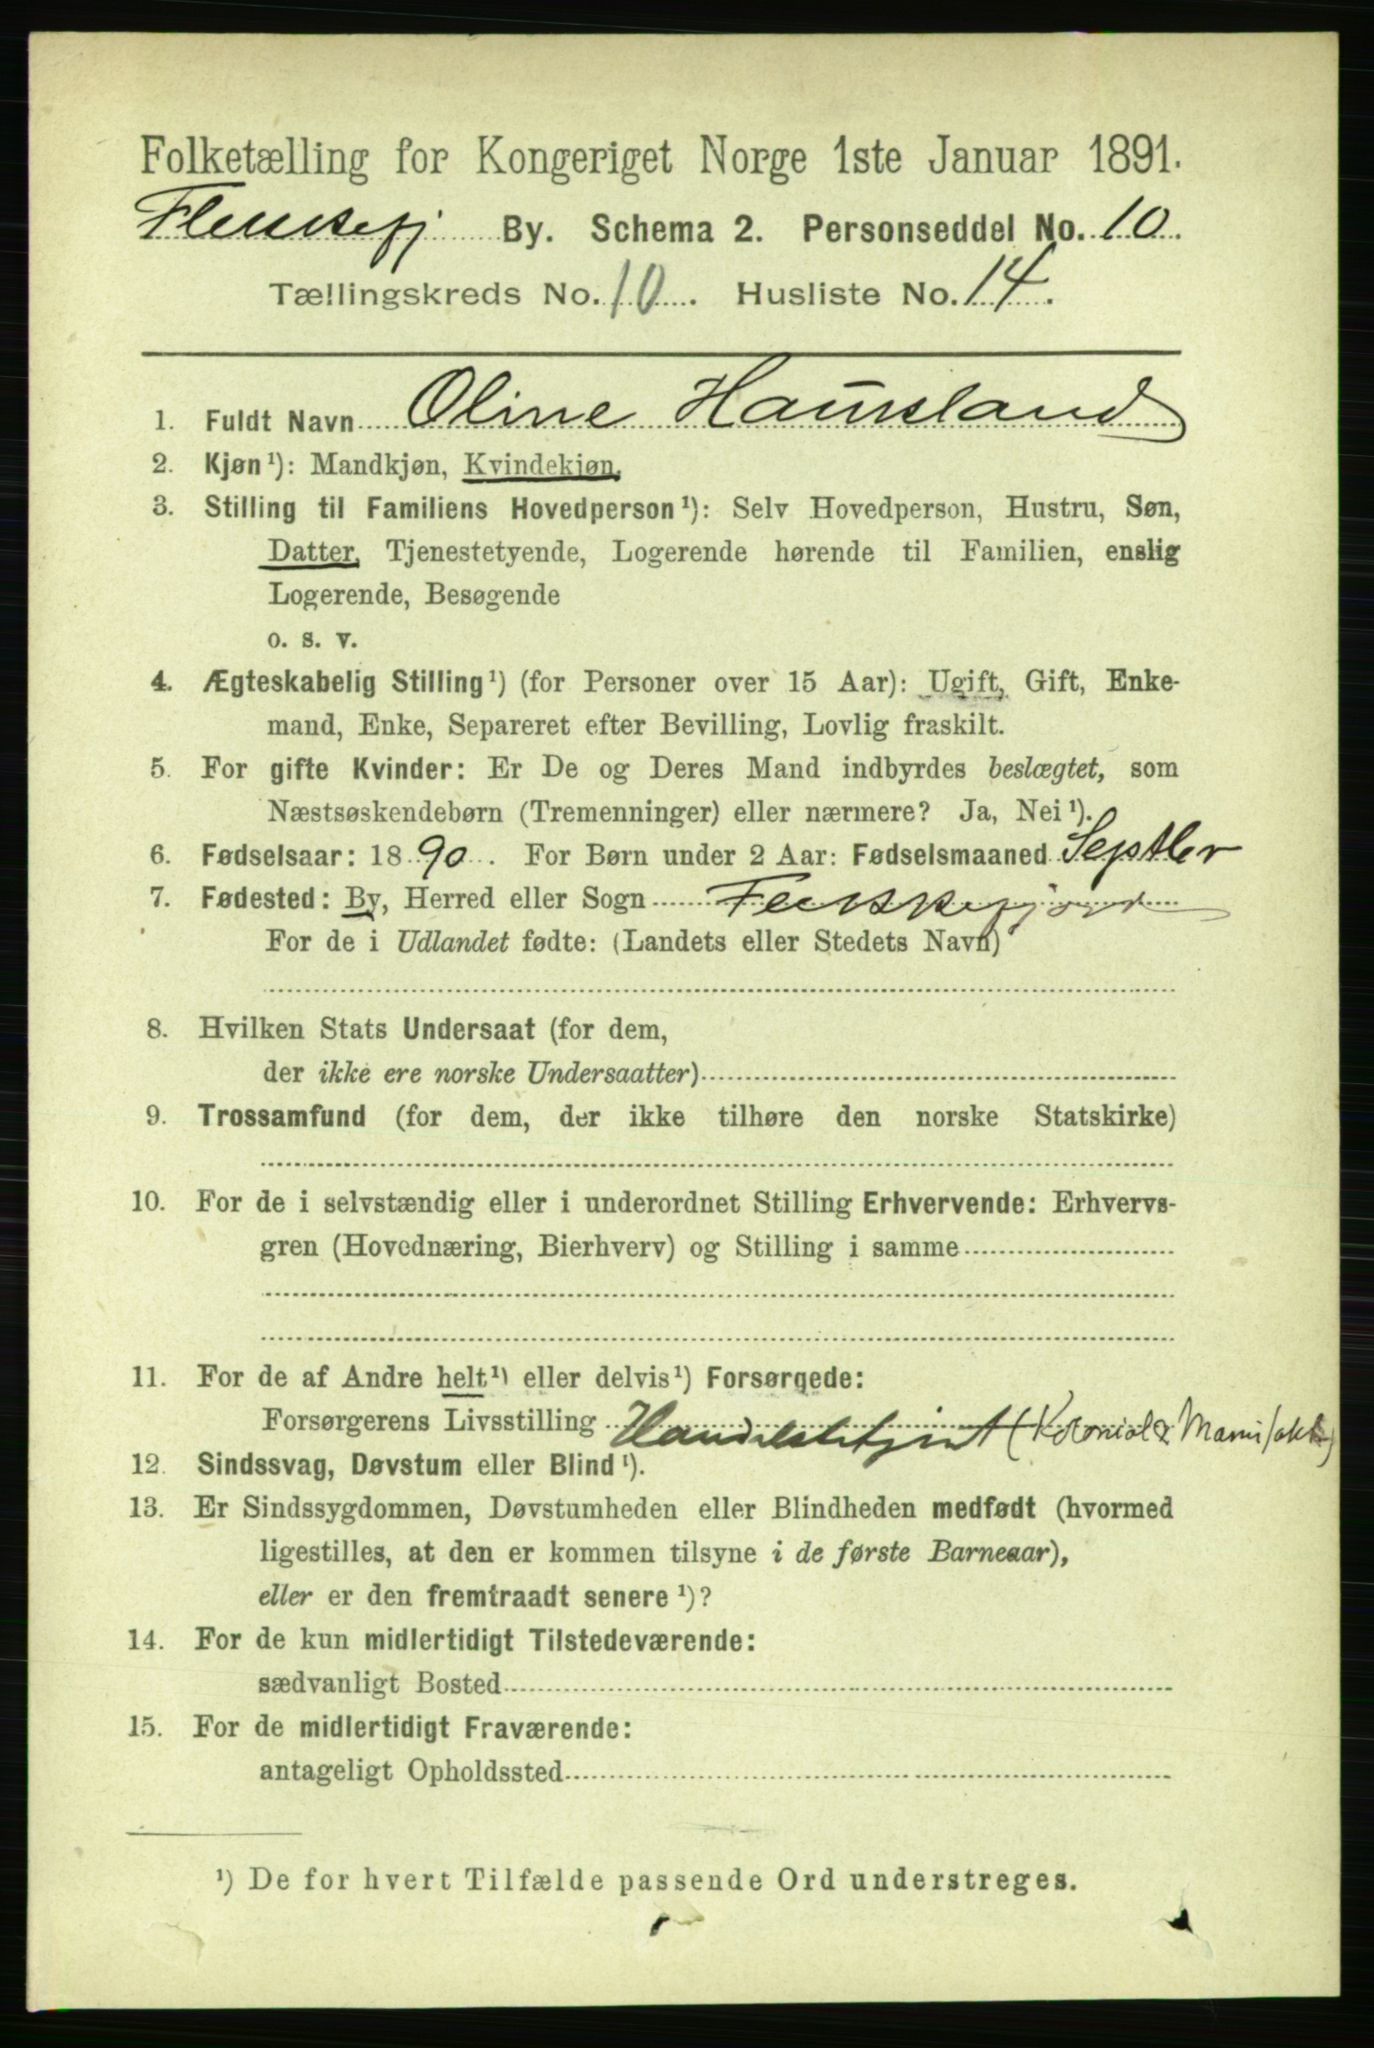 Folketælling for Kongeriget Norge 1ste Januar 1891.
Flekkefj By. Schema 2. Personseddel No. 10.
Tællingskreds No. 10. Husliste No. 14.
1. Fuldt Navn Oline Hausland
2. Kjøn ¹): Mandkjøn, Kvindekjøn.
3. Stilling til Familiens Hovedperson ¹): Selv Hovedperson, Hustru, Søn,
Datter, Tjenestetyende, Logerende hørende til Familien, enslig
Logerende, Besøgende
o. s. v.
4. Ægteskabelig Stilling ¹) (for Personer over 15 Aar): Ugift, Gift, Enke-
mand, Enke, Separeret efter Bevilling, Lovlig fraskilt.
5. For gifte Kvinder: Er De og Deres Mand indbyrdes beslægtet, som
Næstsøskendebørn (Tremenninger) eller nærmere? Ja, Nei ¹).
6. Fødselsaar: 1890. For Børn under 2 Aar: Fødselsmaaned Septbr
7. Fødested: By, Herred eller Sogn Flekkefjord
For de i Udlandet fødte: (Landets eller Stedets Navn)
8. Hvilken Stats Undersaat (for dem,
der ikke ere norske Undersaatter)
9. Trossamfund (for dem, der ikke tilhøre den norske Statskirke)
10. For de i selvstændig eller i underordnet Stilling Erhvervende: Erhvervs-
gren (Hovednæring, Bierhverv) og Stilling i samme
11. For de af Andre helt ¹) eller delvis ¹) Forsørgede:
Forsørgerens Livsstilling Handelsbetjent (Kolonial &
12. Sindssvag, Døvstum eller Blind ¹).
13. Er Sindssygdommen, Døvstumheden eller Blindheden medfødt (hvormed
ligestilles, at den er kommen tilsyne i de første Barneaar),
eller er den fremtraadt senere ¹)?
14. For de kun midlertidigt Tilstedeværende:
sædvanligt Bosted
15. For de midlertidigt Fraværende:
antageligt Opholdssted
¹) De for hvert Tilfælde passende Ord understreges.